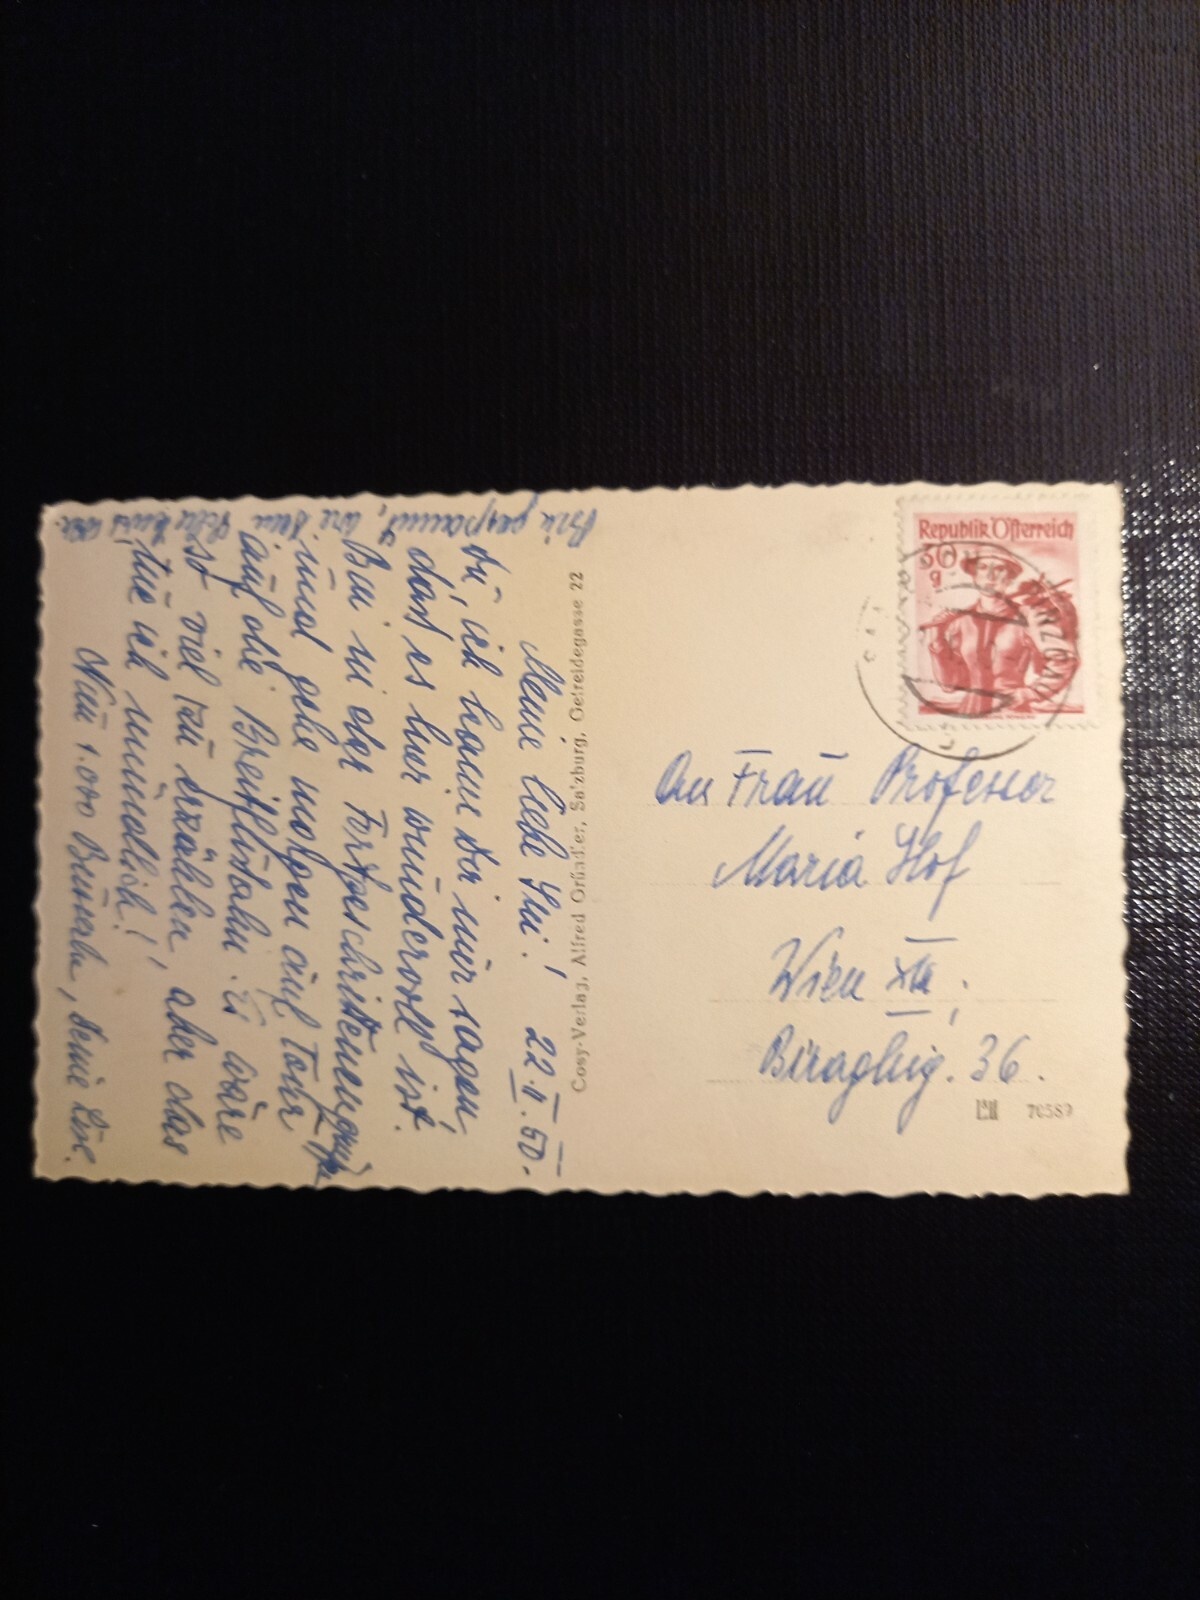 Meine liebe Irri! 22.II.50.
Du, ich kann Dir nur sagen,
dass es hier wundervoll ist.
Bin in der Fortgeschrittenengruppe
und gehe morgen auf Tour
auf die Breitlahn. Es wäre
so viel zu erzählen, aber das
tue ich mündlich!
Nun 1.000 Busserln, Deine Lise.
Bin gespannt, wie Dein
Cosy-Verlag, Alfred Gründler, Salzburg, Getreidegasse 22
Republik Österreich
30
g
An Frau Professor
Maria Hof
Wien XIII.
Biraghig. 36.
70589